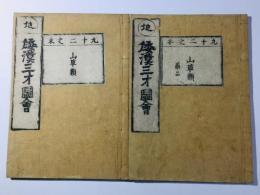 地
倭漢三才圖會
九十二之本
山草類
地
倭漢三才圖會
九十二之
山草類